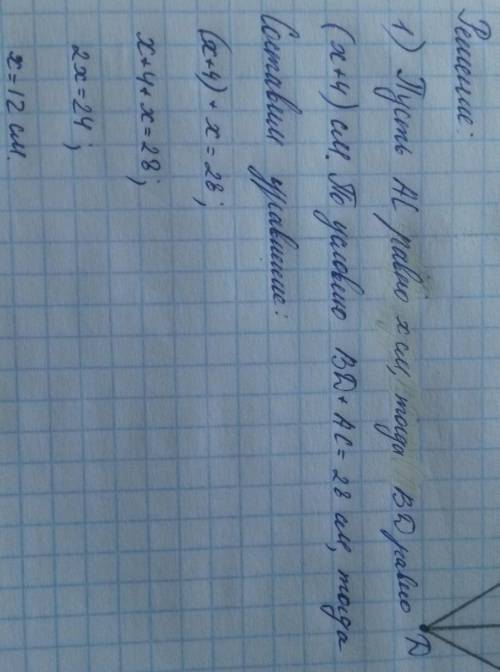 Решение:
1) Пусть AC равно x см, тогда BD равно
(x+4) см. По условию BD + AC = 28 см, тогда
Составим уравнение:
(x+4) + x = 28;
x+4+x = 28;
2x = 24;
x = 12 см.
D